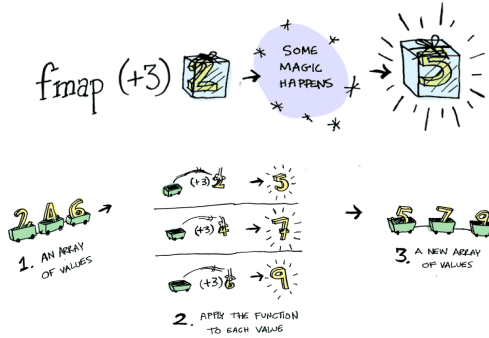 fmap (+3) 2
SOME
MAGIC
HAPPENS
5
2 4 6
1. AN ARRAY
OF VALUES
(+3) 2
5
(+3) 4
7
(+3) 6
9
2. APPLY THE FUNCTION
TO EACH VALUE
5 7 9
3. A NEW ARRAY
OF VALUES